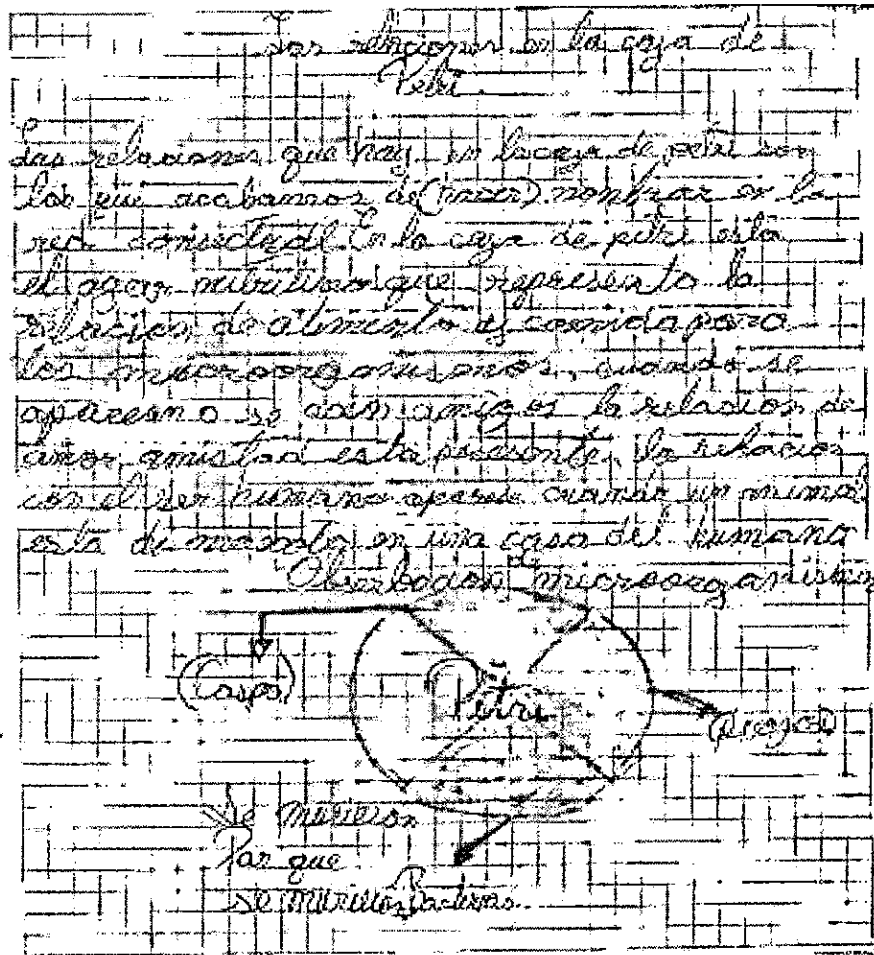 Las relaciones en la caja de
Petri.
Las relaciones que hay en la caja de petri son
los que acabamos de (nacer) nombrar en la
red conceptual En la caja de petri esta
el agar nutritivo que representa la
relacion de alimento es comida para
los microorganismos, cuando se
aparean o se amigos la relacion de
amor amistad esta presente, la relacion
con el ser humano aparece cuando un animal
esta de mascota en una casa del humano
microorganismos
(Caspa)
Petri
(Piojos)
Se murieron
Por que
se